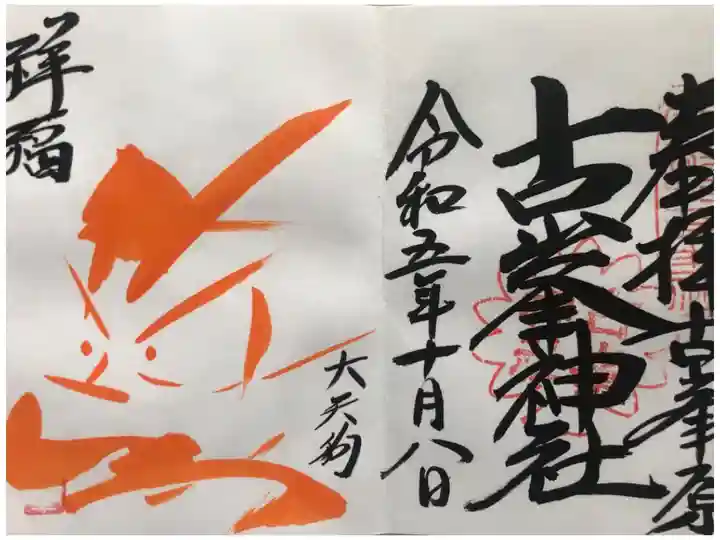 奉拝 古峯原
古峯神社
令和五年十月八日
大天狗
祥福